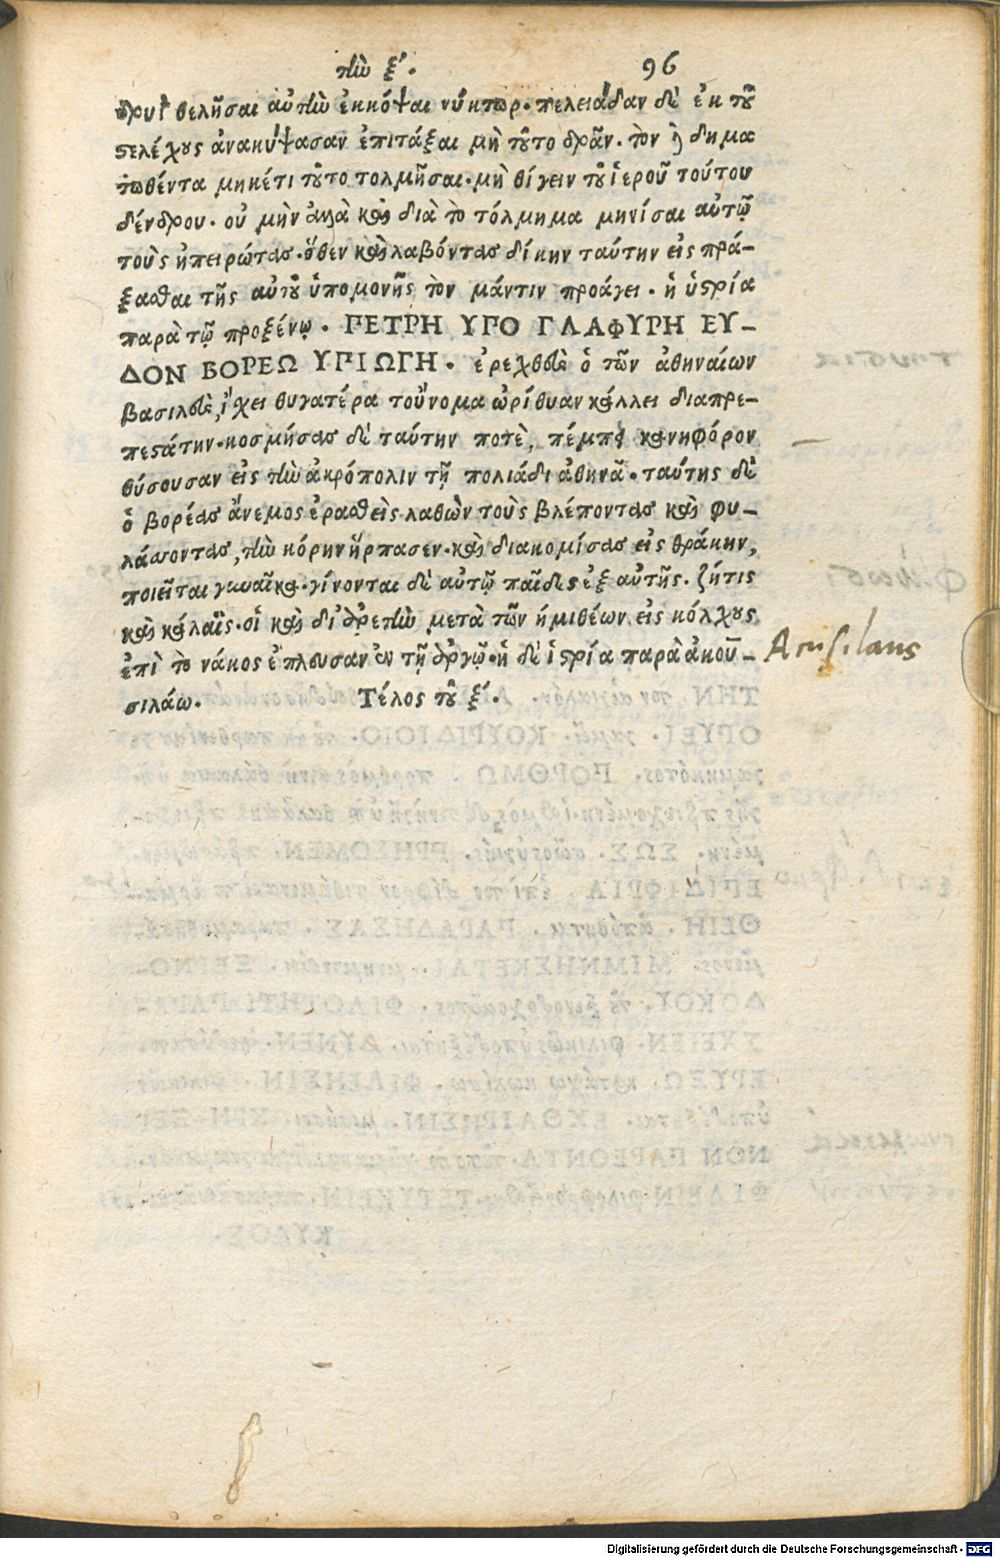 τὴν ξ΄. 96
δρυῒ θελῆσαι αὐτὴν ἐκκόψαι νύκτωρ. πελειάδαν δὲ ἐκ τοῦ
στελέχους ἀνακύψασαν ἐπιτάξαι μὴ τοῦτο δρᾶν. τὸν δὲ δημα
τωθέντα μηκέτι τοῦτο τολμῆσαι. μὴ θίγειν τοῦ ἱεροῦ τούτου
δένδρου. οὐ μὴν ἀλλὰ καὶ διὰ τὸ τόλμημα μηνίσαι αὐτῷ
τοὺς ἠπειρώτας. ὅθεν καὶ λαβόντας δίκην ταύτην εἰς πρά-
ξασθαι τῆς αὐτοῦ ὑπομονῆς τὸν μάντιν προάγει. ἡ ἱστρία
παρὰ τῷ προξένῳ. ΠΕΤΡΗ ΥΠΟ ΓΛΑΦΥΡΗ ΕΥ-
ΔΟΝ ΒΟΡΕΩ ΥΠΙΩΓΗ. ἐρεχθεὺς ὁ τῶν ἀθηναίων
βασιλεὺς, ἴχει θυγατέρα τοὔνομα ὠρίθυαν κάλλει διαπρε-
πεστάτην. κοσμήσας δὲ ταύτην ποτὲ, πέμπει κανηφόρον
θύσουσαν εἰς τὴν ἀκρόπολιν τῇ πολιάδι ἀθηνᾶ. ταύτης δὲ
ὁ βορέας ἄνεμος ἐρασθεὶς λαβὼν τοὺς βλέποντας καὶ φυ-
λάσσοντας, τὴν κόρην ἥρπασεν. καὶ διακομίσας εἰς θράκην,
ποιεῖται γυναῖκα. γίνονται δὲ αὐτῷ παῖδες ἐξ αὐτῆς. ζήτις
καὶ κάλαϊς. οἱ καὶ δι᾽ ἀρετὴν μετὰ τῶν ἡμιθέων εἰς κόλχους
ἐπὶ τὸ νάκος ἔπλευσαν ἐν τῇ ἀργῷ. ἡ δὲ ἱστρία παρὰ ἀκου-
σιλάω. Τέλος τοῦ ξ΄.
Acusilaus
Digitalisierung gefördert durch die Deutsche Forschungsgemeinschaft - DFG